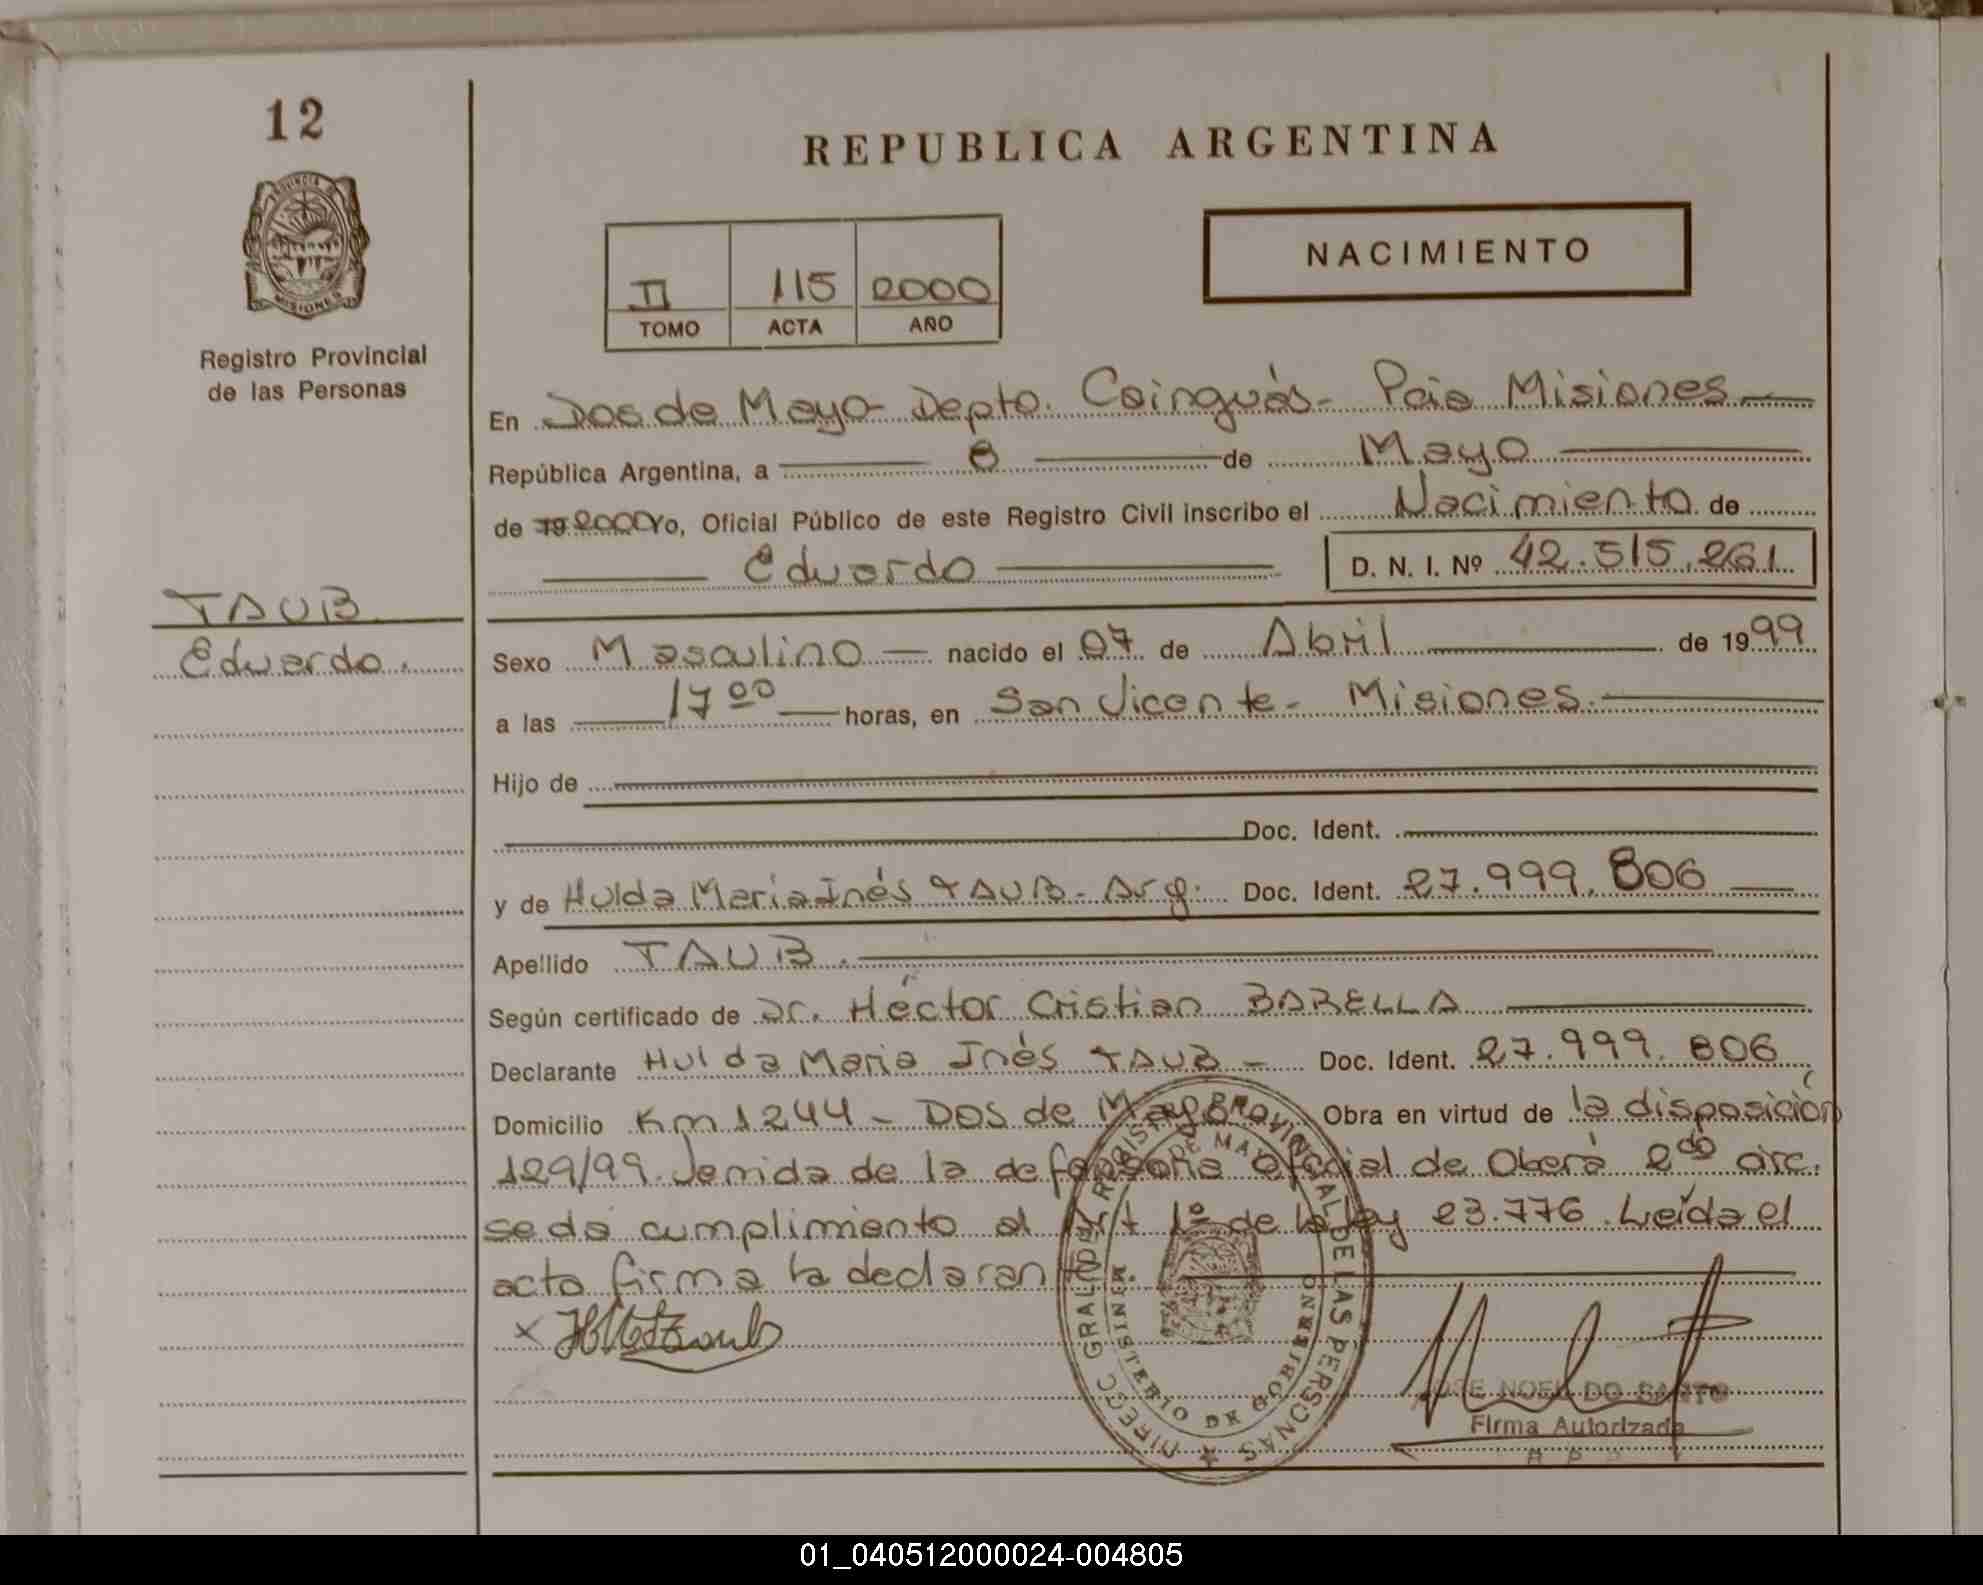 12
REPUBLICA ARGENTINA
NACIMIENTO
II 115 2000
TOMO ACTA AÑO
PROVINCIA DE
MISIONES
Registro Provincial
de las Personas
En Dos de Mayo Depto. Cainguás- Pcia Misiones
República Argentina, a 8 de Mayo
de 19 2000 Yo, Oficial Público de este Registro Civil inscribo el Nacimiento de
Eduardo D. N. I. Nº 42.515.261
TAUB
Eduardo.
Sexo Masculino nacido el 07 de Abril de 1999
a las 17 00 horas, en San Vicente- Misiones.
Hijo de
Doc. Ident.
y de Hulda Maria Inés TAUB- Arg. Doc. Ident. 27.999.806
Apellido TAUB.
Según certificado de Dr. Héctor Cristian BARELLA
Declarante Hulda Maria Inés TAUB - Doc. Ident. 27.999.806
Domicilio Km 1244 - Dos de Mayo Obra en virtud de la disposición
129/99. Venida de la defensoria oficial de Oberá 2da circ.
se dá cumplimiento al Art 1º de la ley 23.776. Leída el
acta firma la declarante.
x HMITaub
DIRECC GRAL DEL REGISTRO PROVINCIAL DE LAS PERSONAS
DE MAYO
MINISTERIO DE GOBIERNO
JOSE NOEL DO SANTO
Firma Autorizada
01_040512000024-004805